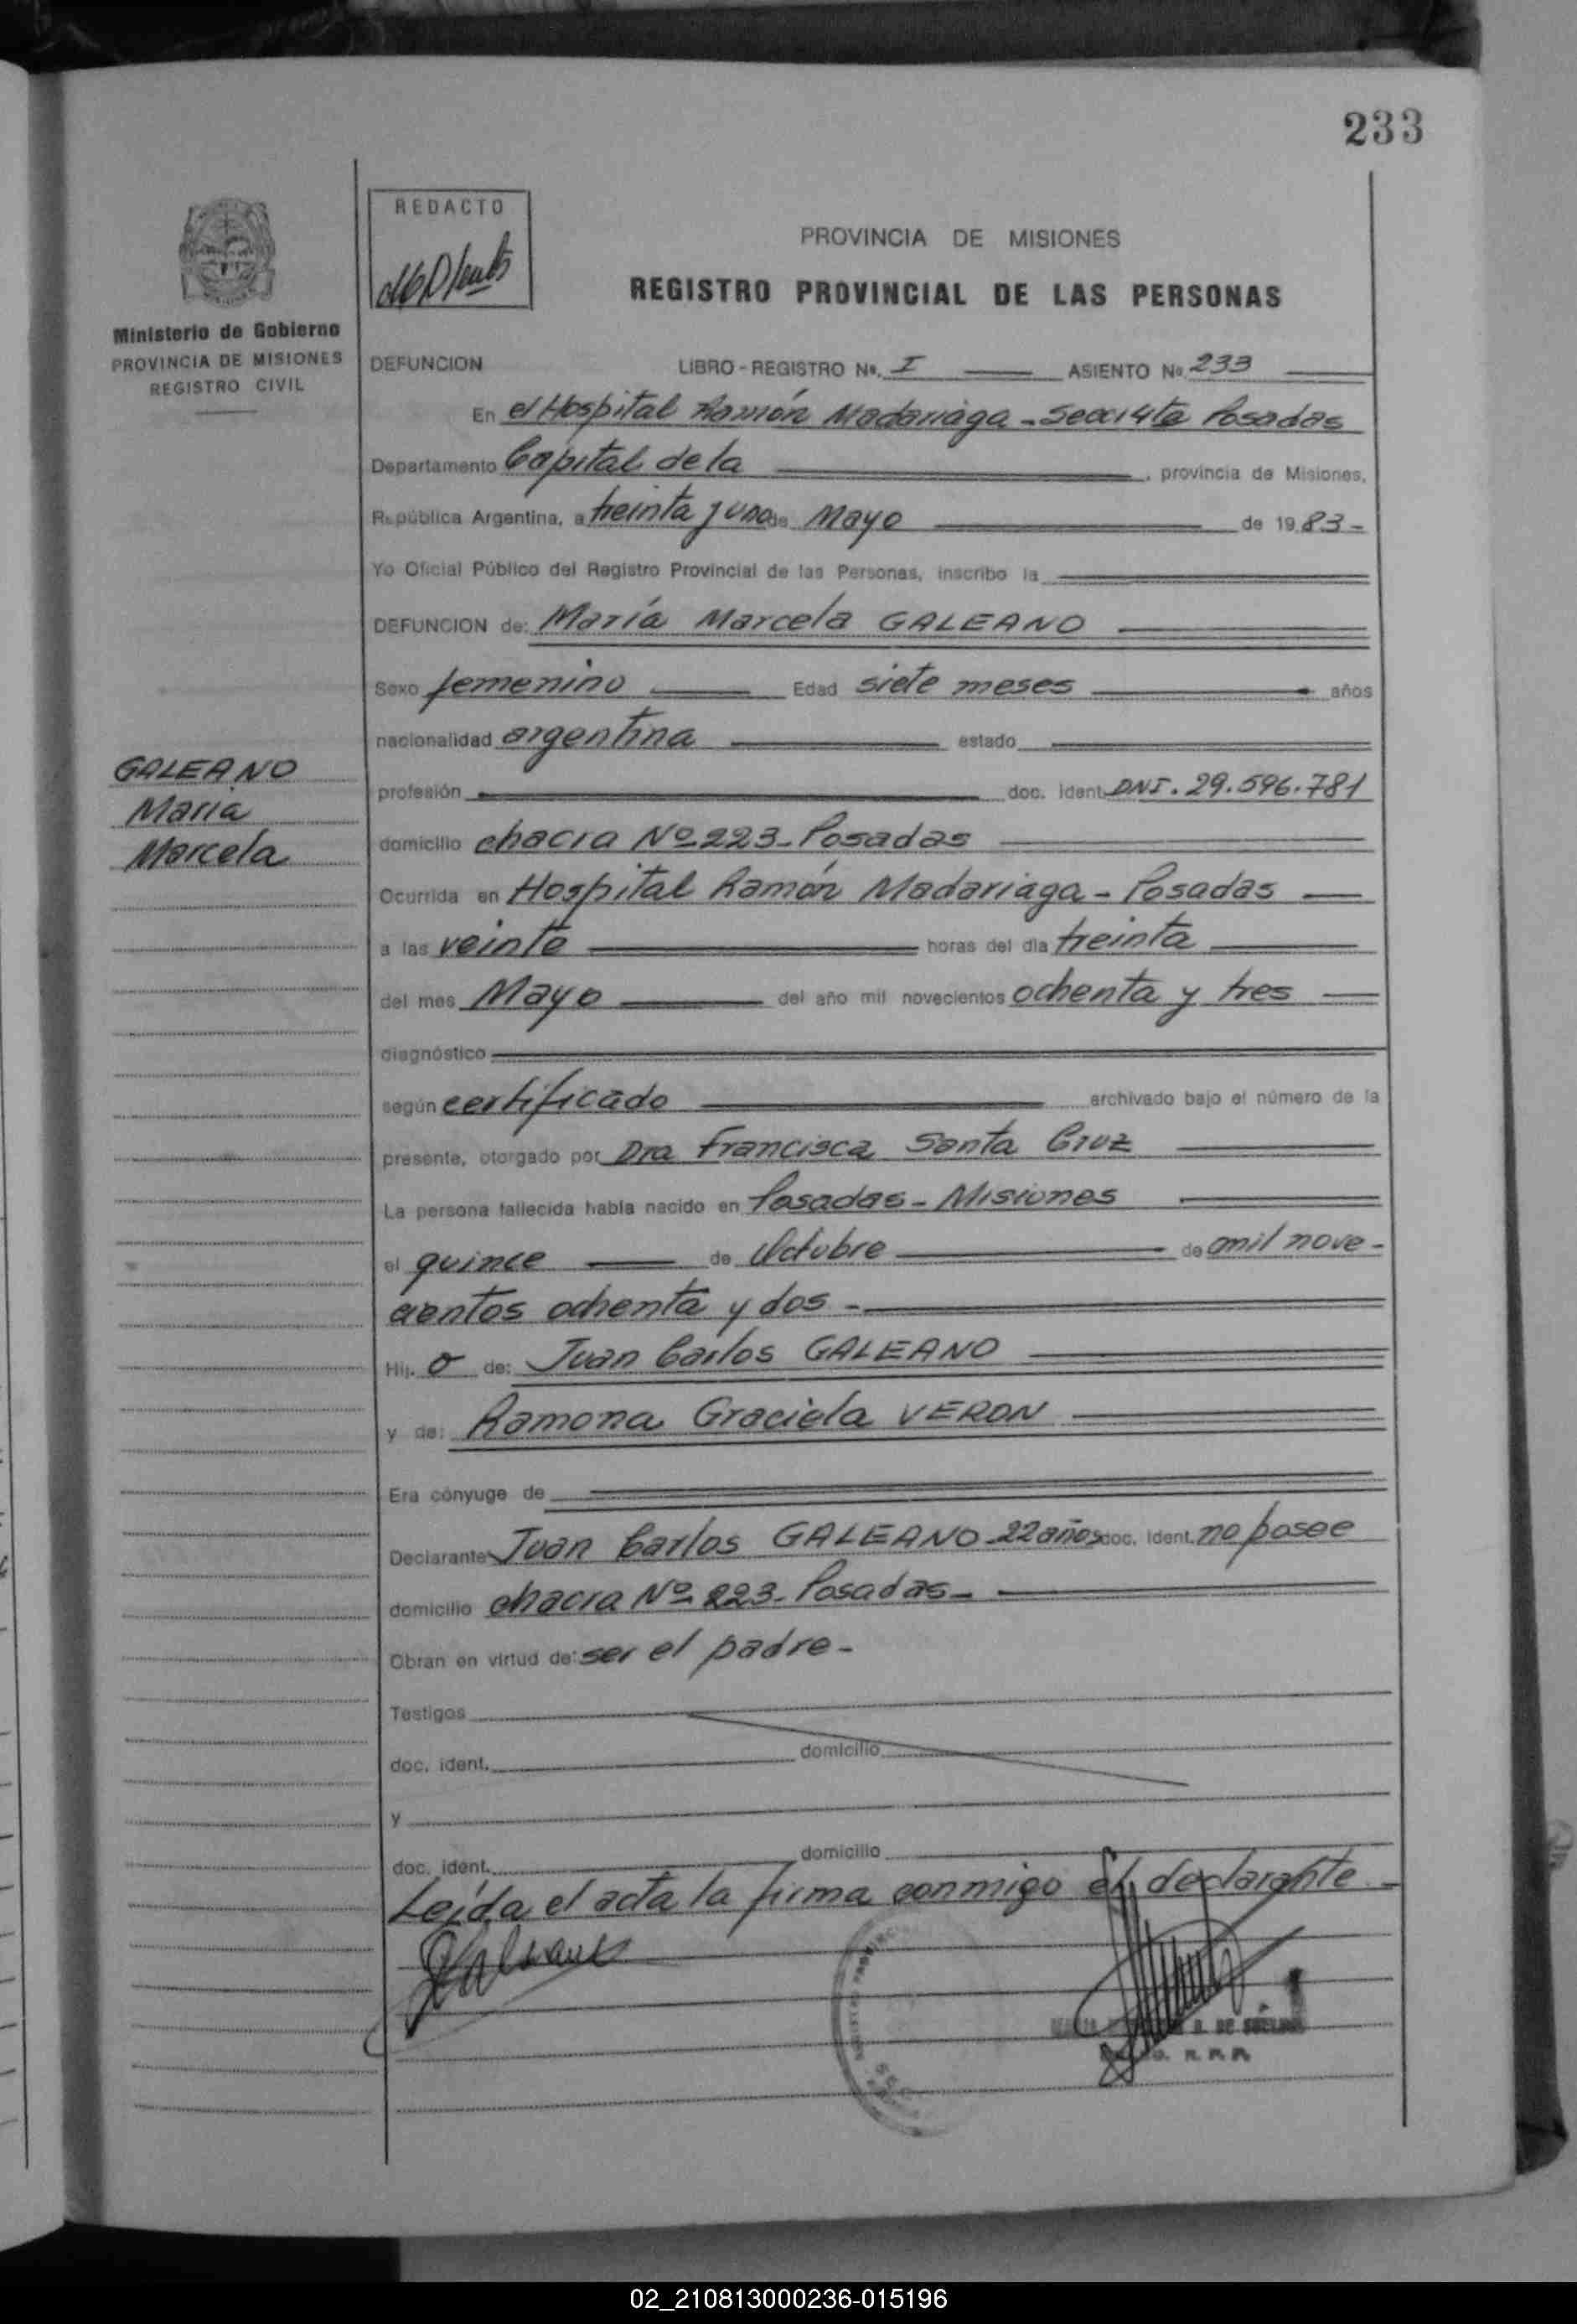 233
REDACTO
PROVINCIA DE MISIONES
REGISTRO PROVINCIAL DE LAS PERSONAS
Ministerio de Gobierno
PROVINCIA DE MISIONES
REGISTRO CIVIL
DEFUNCION LIBRO - REGISTRO Nº. I ASIENTO Nº 233
En el Hospital Ramón Madariaga - Secc 4ta Posadas
Departamento Capital de la , provincia de Misiones,
República Argentina, a treinta y uno de Mayo de 19 83 -
Yo Oficial Público del Registro Provincial de las Personas, inscribo la
DEFUNCION de: María Marcela GALEANO
Sexo femenino Edad siete meses años
nacionalidad argentina estado
GALEANO
María
Marcela
profesión doc. ident. DNI. 29.596.781
domicilio chacra Nº 223 - Posadas
Ocurrida en Hospital Ramón Madariaga - Posadas
a las veinte horas del día treinta
del mes Mayo del año mil novecientos ochenta y tres
diagnóstico
según certificado archivado bajo el número de la
presente, otorgado por Dra Francisca Santa Cruz
La persona fallecida había nacido en Posadas - Misiones
el quince de Octubre de mil nove -
cientos ochenta y dos -
Hij. o de: Juan Carlos GALEANO
y de: Ramona Graciela VERON
Era cónyuge de
Declarante Juan Carlos GALEANO - 22 años doc. ident. no posee
domicilio chacra Nº 223 - Posadas -
Obran en virtud de: ser el padre -
Testigos
doc. ident. domicilio
y
doc. ident. domicilio
Leída el acta la firma conmigo el declarante -
02_210813000236-015196